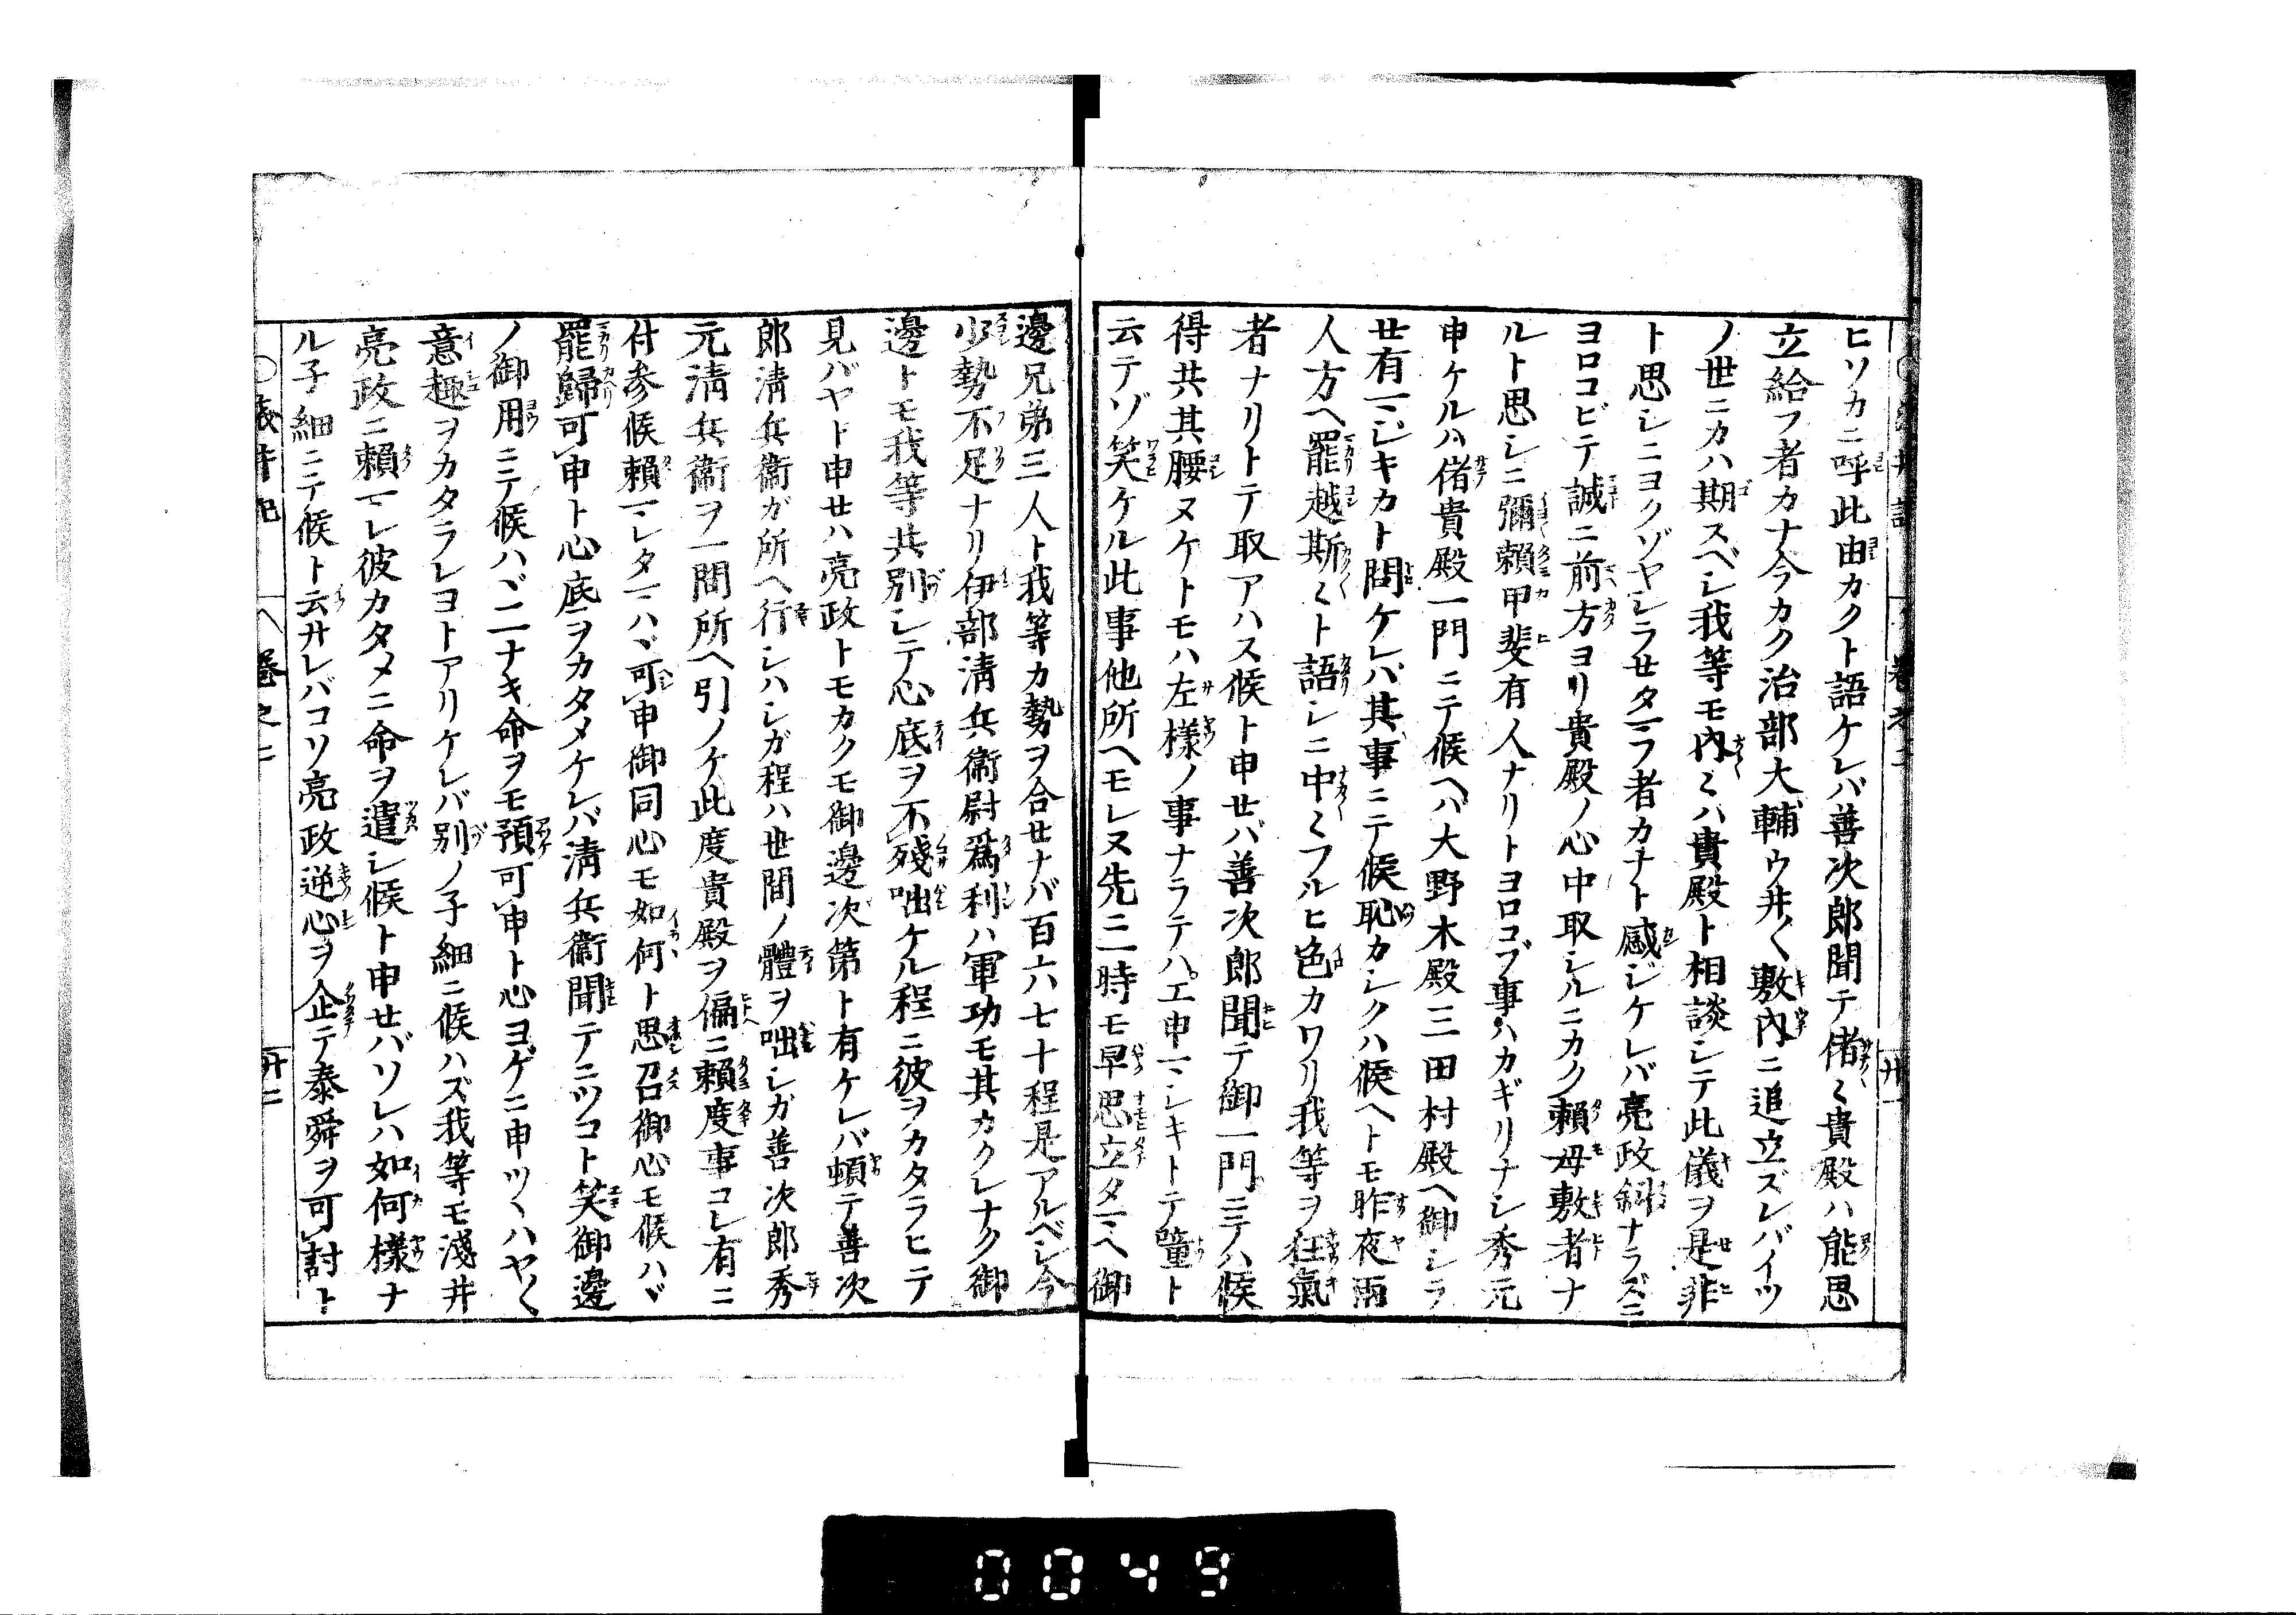 ヒソカニ呼此由カクト語ケレバ善次郎聞テ偖〻貴殿ハ能思
立給フ者カナ今カク治部大輔ウ井〱敷内ニ追立ズレバイツ
ノ世ニカハ期スベシ我等モ内〻ハ貴殿ト相談シテ此儀ヲ是非
ト思シニヨクゾヤシラせタマフ者カナト感ジケレバ亮政斜ナラズニ
ヨロコビテ誠ニ前方ヨリ貴殿ノ心中取シルニカク頼母敷者ナ
ルト思シニ彌頼甲斐有人ナリトヨロコブ事ハカギリナシ秀元
申ケルハ偖貴殿一門ニテ候ヘバ大野木殿三田村殿ヘ御シラ
せ有マジキカト問ケレバ其事ニテ候恥カシクハ候ヘトモ昨夜兩
人方ヘ罷越斯〻ト語シニ中〻フルヒ色カワリ我等ヲ狂氣
者ナリトテ取アハス候ト申せバ善次郎聞テ御一門ニテハ候
得共其腰ヌケトモハ左様ノ事ナラテハエ申マシキトテ瞳ト
云テゾ笑ケル此事他所ヘモレヌ先ニ時モ早思立タマヘ御
邊兄弟三人ト我等カ勢ヲ合せナバ百六七十程是アルベシ今
少勢不足ナリ伊部淸兵衞尉爲利ハ軍功モ其カクレナク御
邊トモ我等共別シテ心底ヲ不殘咄ケル程ニ彼ヲカタラヒテ
見バヤト申せハ亮政トモカクモ御邊次第ト有ケレバ頓テ善次
郎淸兵衞ガ所ヘ行シハシガ程ハ世間ノ體ヲ咄シガ善次郎秀
元淸兵衞ヲ一間所ヘ引ノケ此度貴殿ヲ偏ニ頼度事コレ有ニ
付参候頼マレタマハヾ可申御同心モ如何ト思召御心モ候ハヾ
罷歸可申ト心底ヲカタメケレバ淸兵衞聞テニツコト笑御邊
ノ御用ニテ候ハヾ二ナキ命ヲモ預可申ト心ヨゲニ申ツヽハヤ〱
意趣ヲカタラレヨトアリケレバ別ノ子細ニ候ハズ我等モ淺井
亮政ニ頼マレ彼カタメニ命ヲ遣シ候ト申せバソレハ如何様ナ
ル子細ニテ候ト云ケレバコソ亮政逆心ヲ企テ泰舜ヲ可討ト
卷之二
廿二
0049